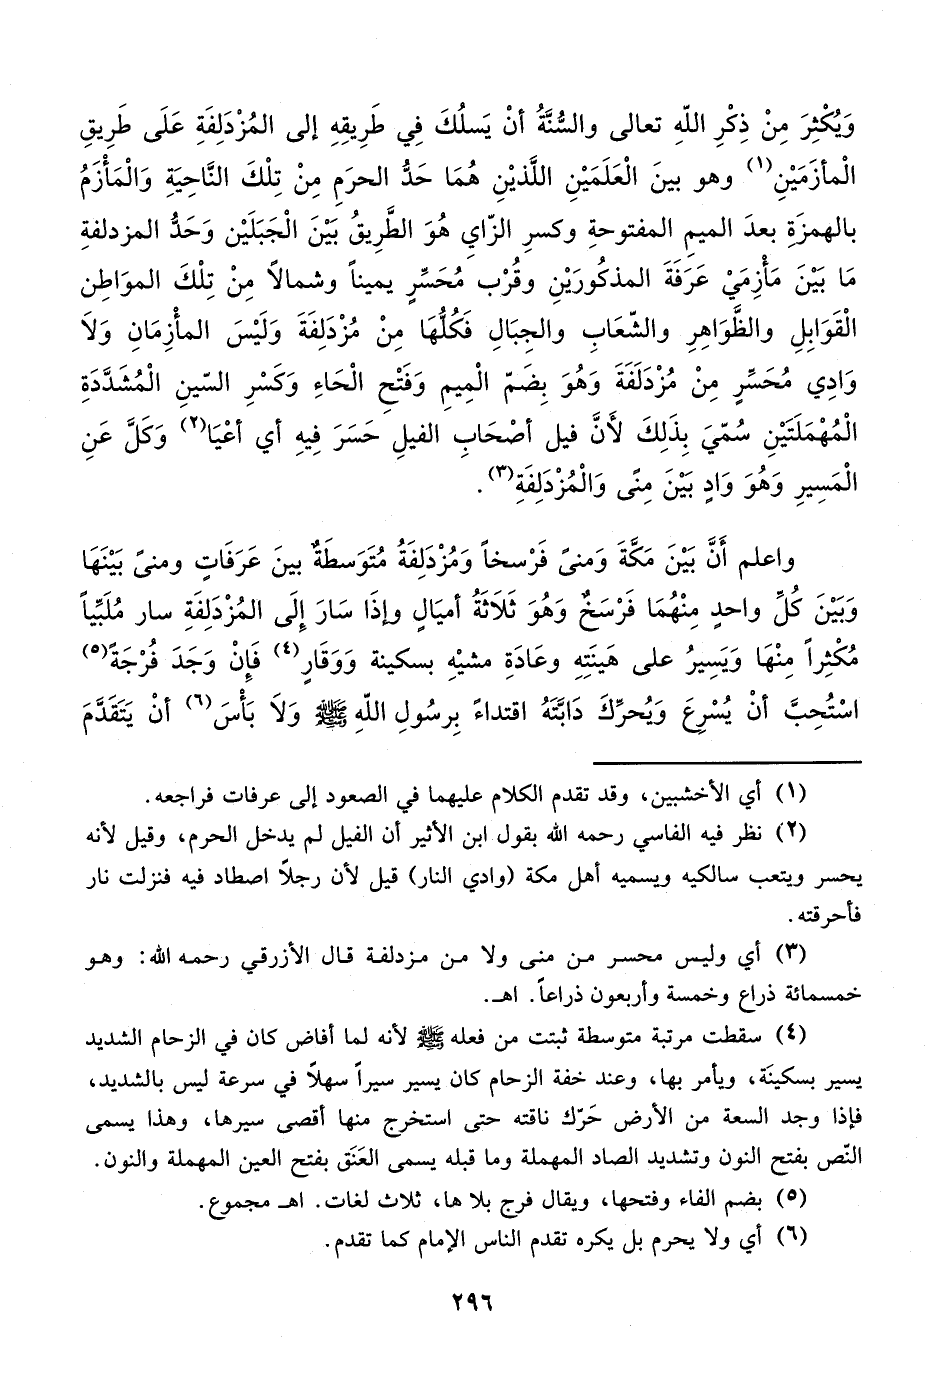 وَيُكْثِرَ مِنْ ذِكْرِ اللّهِ تعالى والسُّنَّةُ أنْ يَسلُكَ فِي طَرِيقِهِ إلى المُزْدَلِفَةِ عَلَى طَرِيقِ
الْمأزَمَيْنِ(١) وهو بينَ الْعَلَمَيْنِ اللَّذيْنِ هُمَا حَدُّ الحرَمِ مِنْ تِلْكَ النَّاحِيَةِ وَالْمَأْزَمُ
بالهمزَةِ بعدَ الميمِ المفتوحةِ وكسرِ الزّاي هُوَ الطَّرِيقُ بَيْنَ الْجَبَلَيْن وَحَدُّ المزدلفةِ
مَا بَيْنَ مَأْزِمَيْ عَرَفَةَ المذكورَيْنِ وقُرْب مُحَسِّرٍ يميناً وشمالاً مِنْ تِلْكَ المواطِن
الْقَوَابِلِ والظَّوَاهِرِ والشّعَابِ والجبَالِ فَكُلُّهَا مِنْ مُزْدَلِفَةَ وَلَيْسَ المأْزِمَانِ وَلَا
وَادِي مُحَسِّرٍ مِنْ مُزْدَلَفَةَ وَهُوَ بِضَمّ الْمِيمِ وَفَتْحِ الْحَاءِ وَكَسْرِ السّينِ الْمُشَدَّدَةِ
الْمُهْمَلَتَيْنِ سُمّيَ بِذَلِكَ لأَنَّ فيل أصْحَابِ الفيلِ حَسَرَ فِيهِ أي أعْيَا(٢) وَكَلَّ عَنِ
الْمَسِيرِ وَهُوَ وَادٍ بَيْنَ مِنًى وَالْمُزْدَلِفَةِ(٣).
واعلم أَنَّ بَيْنَ مَكَّةَ وَمنىً فَرْسخاً وَمُزْدَلِفَةُ مُتَوَسطَةٌ بينَ عَرَفَاتٍ ومنىً بَيْنَهَا
وَبَيْنَ كُلِّ واحدٍ مِنْهُمَا فَرْسَخٌ وَهُوَ ثَلَاثَةُ أميَالٍ وإذَا سَارَ إلَى المُزْدَلِفَةِ سار مُلَبِّياً
مُكْثِراً مِنْهَا وَيَسِيرُ على هَيِنَتِهِ وعَادَةِ مشيْهِ بسكينة وَوَقَارٍ(٤) فَإِنْ وَجَدَ فُرْجَةً(٥)
اسْتُحِبَّ أنْ يُسْرِعَ وَيُحرِّكَ دَابَّتَهُ اقتداءً بِرسُولِ اللّهِ ﷺ وَلَا بَأْسَ(٦) أنْ يَتَقَدَّمَ
(١) أي الأخشبين، وقد تقدم الكلام عليهما في الصعود إلى عرفات فراجعه.
(٢) نظر فيه الفاسي رحمه الله بقول ابن الأثير أن الفيل لم يدخل الحرم، وقيل لأنه
يحسر ويتعب سالكيه ويسميه أهل مكة (وادي النار) قيل لأن رجلاً اصطاد فيه فنزلت نار
فأحرقته.
(٣) أي وليس محسر من منى ولا من مزدلفة قال الأزرقي رحمه الله: وهو
خمسمائة ذراع وخمسة وأربعون ذراعاً. اهـ.
(٤) سقطت مرتبة متوسطة ثبتت من فعله ﷺ لأنه لما أفاض كان في الزحام الشديد
يسير بسكينَة، ويأمر بها، وعند خفة الزحام كان يسير سيراً سهلاً في سرعة ليس بالشديد،
فإذا وجد السعة من الأرض حَرّك ناقته حتى استخرج منها أقصى سيرها، وهذا يسمى
النّص بفتح النون وتشديد الصاد المهملة وما قبله يسمى العَنَق بفتح العين المهملة والنون.
(٥) بضم الفاء وفتحها، ويقال فرج بلا ها، ثلاث لغات. اهـ مجموع.
(٦) أي ولا يحرم بل يكره تقدم الناس الإمام كما تقدم.
٢٩٦